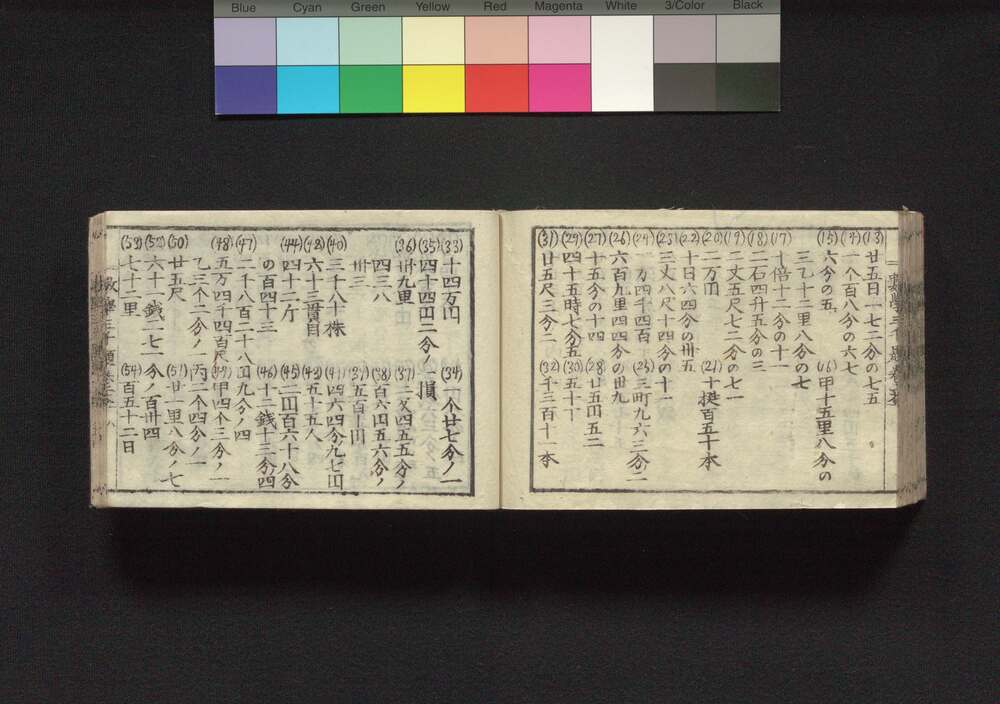 Blue Cyan Green Yellow Red Magenta White 3/Color Black
(13) 廿五日一七二分の七五
(14) 一个百八分の六七
(15) 六分の五 (16) 甲十五里八分の
三乙十二里八分の七
(17) 十倍十二分の十一
(18) 二石四升五分の三
(19) 二丈五尺七二分の七一
(20) 二万円 (21) 十挺百五十本
(22) 十日六四分の卅五
(25) 三丈八尺十四分の十一
(24) 万四千四百 (23) 三町九六三分二
(26) 六百九里四四分の卅九
(27) 十五分の十四 (28) 廿五円五二
(29) 四十五時七分五 (30) 五十丁
(31) 廿五尺三分二 (32) 千三百十一本
(33) 十四万円 (34) 一个廿七分ノ一
(35) 四十四円二分ノ一損
(36) 卅九里 (37) 二文四五五分ノ
四三八 (38) 百六円五六分ノ
卅三 (39) 五百十円
(40) 三千八十株 (41) 四六四分九七円
(42) 六十三貫目 (43) 五十五人
(44) 四十二斤 (45) 二円百六十八分
の百四十三 (46) 十二銭十三分四
(47) 二千八百二十八円九分ノ四
(48) 五万四千四百尺 (49) 甲四个三分ノ一
乙三个二分ノ一丙二个四分ノ一
(50) 廿五尺 (51) 廿一里八分ノ七
(52) 六十一銭二七一分ノ百卅四
(53) 七十二里 (54) 百五十二日